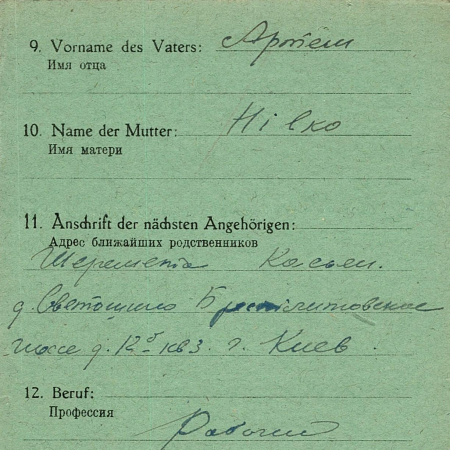 9. Vorname des Vaters: Артём
Имя отца
10. Name der Mutter: Нілко
Имя матери
11. Anschrift der nächsten Angehörigen:
Адрес ближайших родственников
Шеремета Касьян.
д Святошино Брестлитовское
шоссе д. 12 б кв 3. г. Киев.
12. Beruf:
Профессия
Рабочий